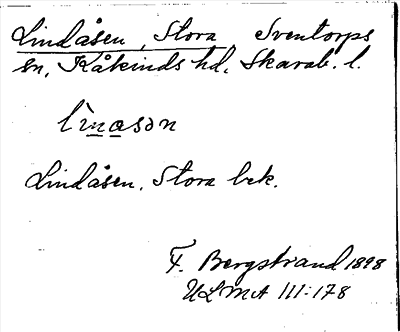 Lindåsen, Stora Sventorps
sn, Kåkinds hd. Skarab. l.
lìnasən
Lindåsen, Stora bek.
F. Bergstrand 1898
ULMA 111:178